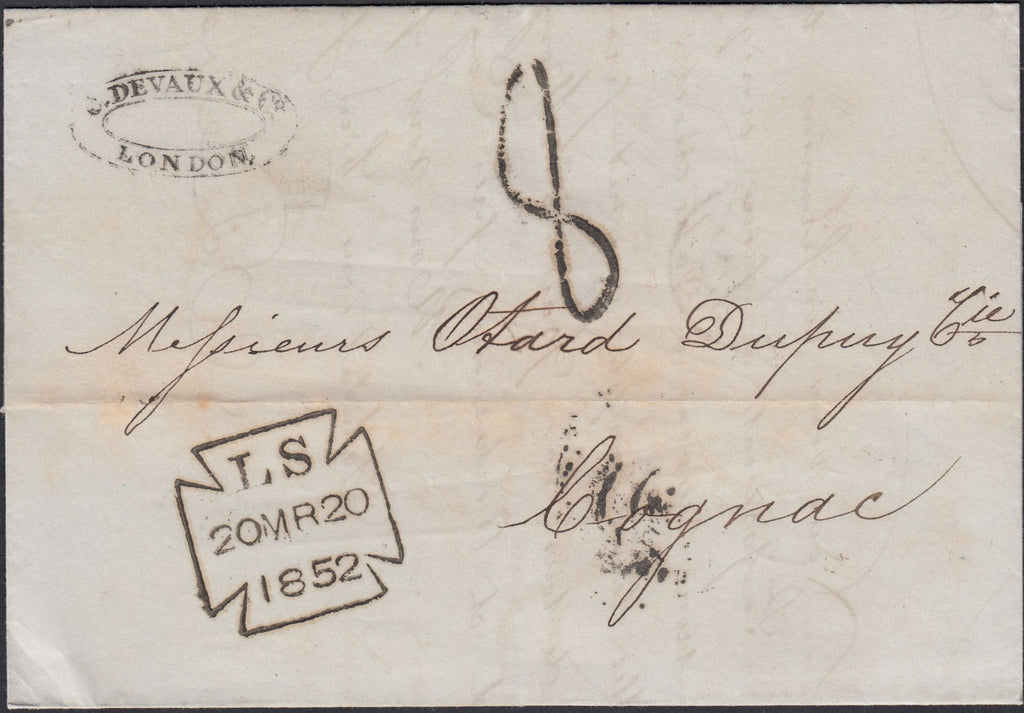 C. DEVAUX & Co.
LONDON.
8
Messieurs Otard Dupuy & Cie
Cognac
LS
20MR20
1852